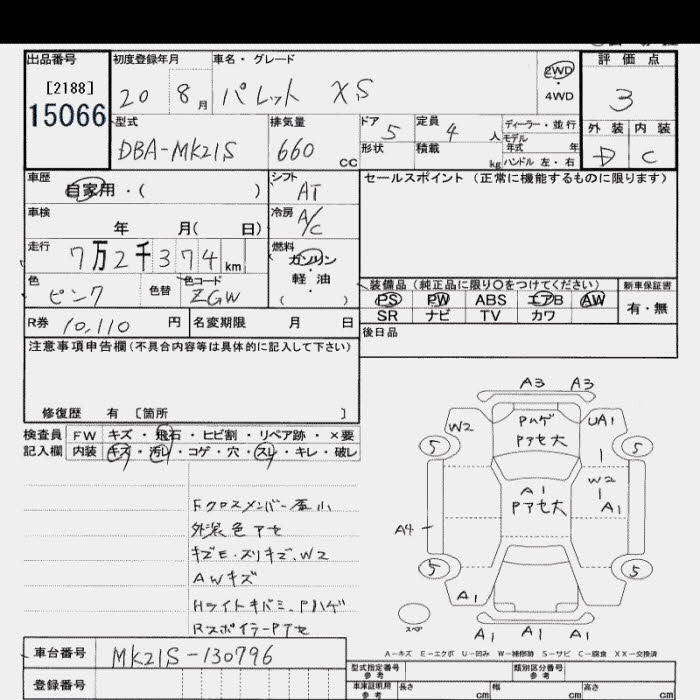 出品番号 初度登録年月 車名・グレード 2WD 評価点
[2188] 20 8月 パレット XS 4WD 3
15066
型式 排気量 ドア 5 定員 4人 ディーラー・並行 外装 内装
DBA-MK21S 660cc 形状 積載 kg モデル年式 年 D C
ハンドル 左・右
車歴 シフト セールスポイント (正常に機能するものに限ります)
自家用・( ) AT
車検 冷房
年 月( 日) A/C
走行 燃料
7万2千374km ガソリン・軽油
色 色替 色コード ( )
ピンク ZGW
装備品 (純正品に限り○をつけてください) 新車保証書
PS PW ABS エアB AW 有・無
SR ナビ TV カワ
R券 10,110円 名変期限 月 日 後日品
注意事項申告欄 (不具合内容等は具体的に記入して下さい)
修復歴 有 [箇所 ]
検査員 FW キズ・飛石・ヒビ割・リペア跡・×要
記入欄 内装 キズ・汚レ・コゲ・穴・スレ・キレ・破レ
Fクロスメンバー歪小
外装色アセ
キズE・スリキズ、W2
AWキズ
Hライトキバミ、Pハゲ
Rスポイラー P アセ
A3 A3
W2 Pハゲ UA1
Pアセ大
5 5
W2
A1 A1
Pアセ大
A4
5 5
A1
A1 A1 A1
スペア
A-キズ E-エクボ U-凹み W-補修跡 S-サビ C-腐食 XX-交換済
車台番号 MK21S-130796
型式指定番号 参考 類別区分番号 参考
登録番号
車庫証明用 参考 長さ cm 幅 cm 高さ cm